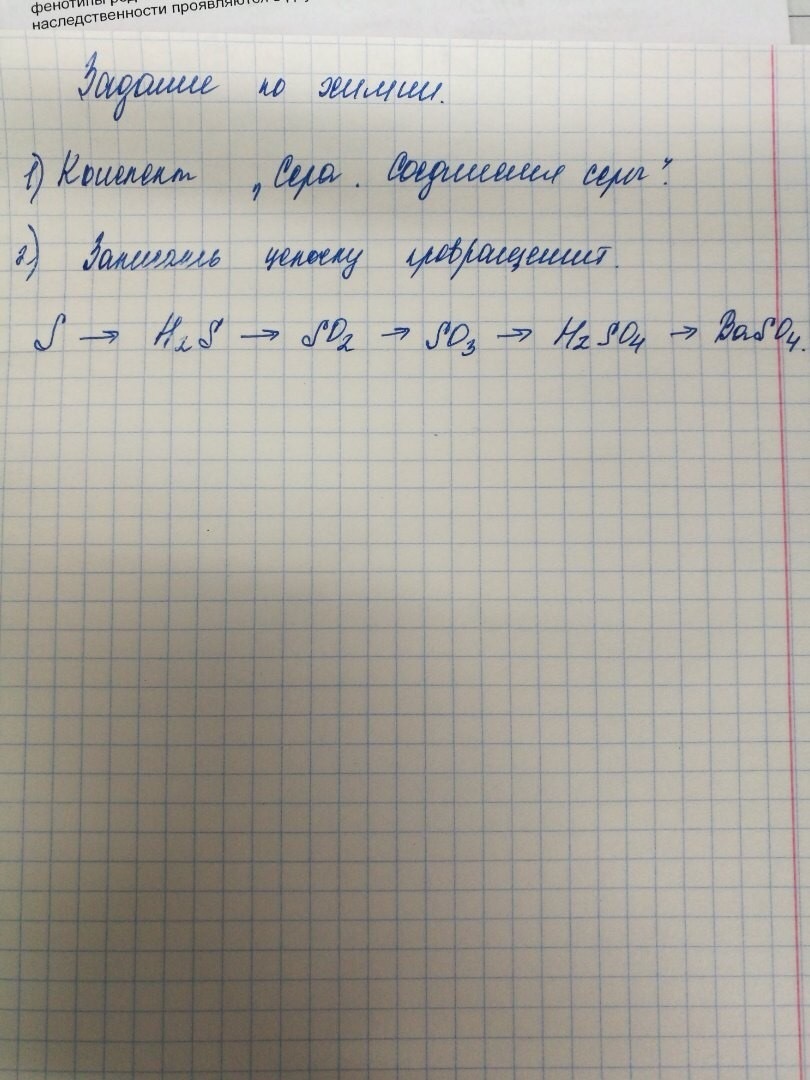 фенотипы
наследственности проявляются в
Задание по химии.
1) Конспект „Сера. Соединения серы“.
2) Записать цепочку превращений.
S → H₂S → SO₂ → SO₃ → H₂SO₄ → BaSO₄.